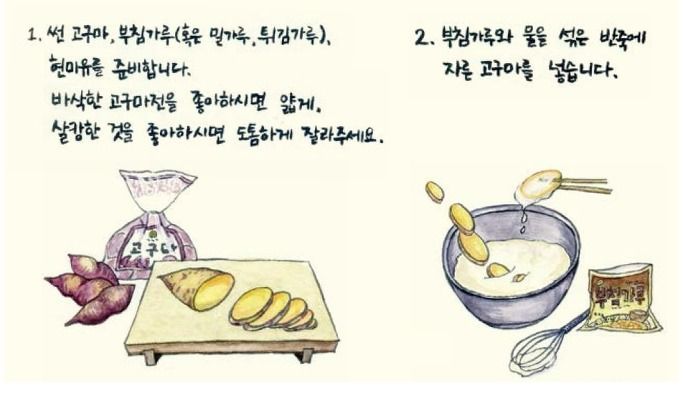 1. 썬 고구마, 부침가루(혹은 밀가루, 튀김가루),
현미유를 준비합니다.
바삭한 고구마전을 좋아하시면 얇게,
살캉한 것을 좋아하시면 도톰하게 잘라주세요.
2. 부침가루와 물을 섞은 반죽에
자른 고구마를 넣습니다.
고구마
부침가루